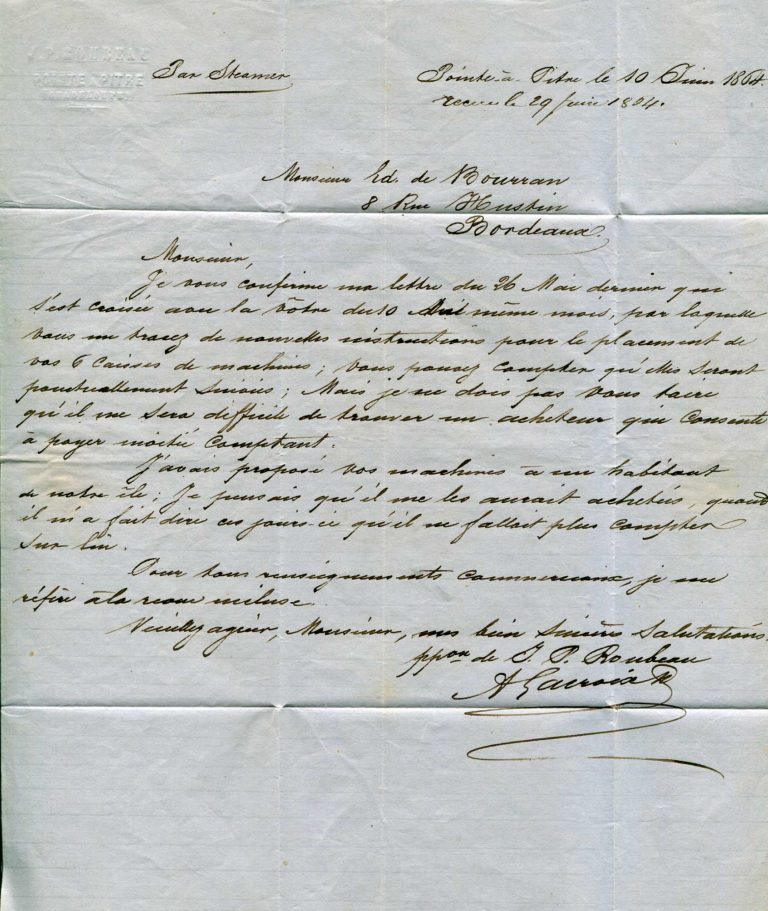 J. P. ROUBEAU
POINTE A PITRE
Par Steamer
Pointe-à-Pitre le 10 Juin 1864.
recue le 29 juin 1864.
Monsieur Ed. de Bourran
8 Rue Hustin
Bordeaux.
Monsieur,
Je vous confirme ma lettre du 26 Mai dernier qui
s'est croisée avec la vôtre du 10 même mois, par laquelle
vous me tracez de nouvelles instructions pour le placement de
vos 6 caisses de machines; vous pouvez compter qu'elles seront
ponctuellement suivies; Mais je ne dois pas vous taire
qu'il me sera difficile de trouver un acheteur qui consente
à payer moitié comptant.
J'avais proposé vos machines à un habitant
de notre île; Je pensais qu'il me les aurait achetées, quand
il m'a fait dire ces jours-ci qu'il ne fallait plus compter
sur lui.
Pour tous renseignements commerciaux, je me
réfère à la revue incluse.
Veuillez agréer, Monsieur, mes bien sincères salutations.
ppon de J. P. Roubeau
A Lacroix